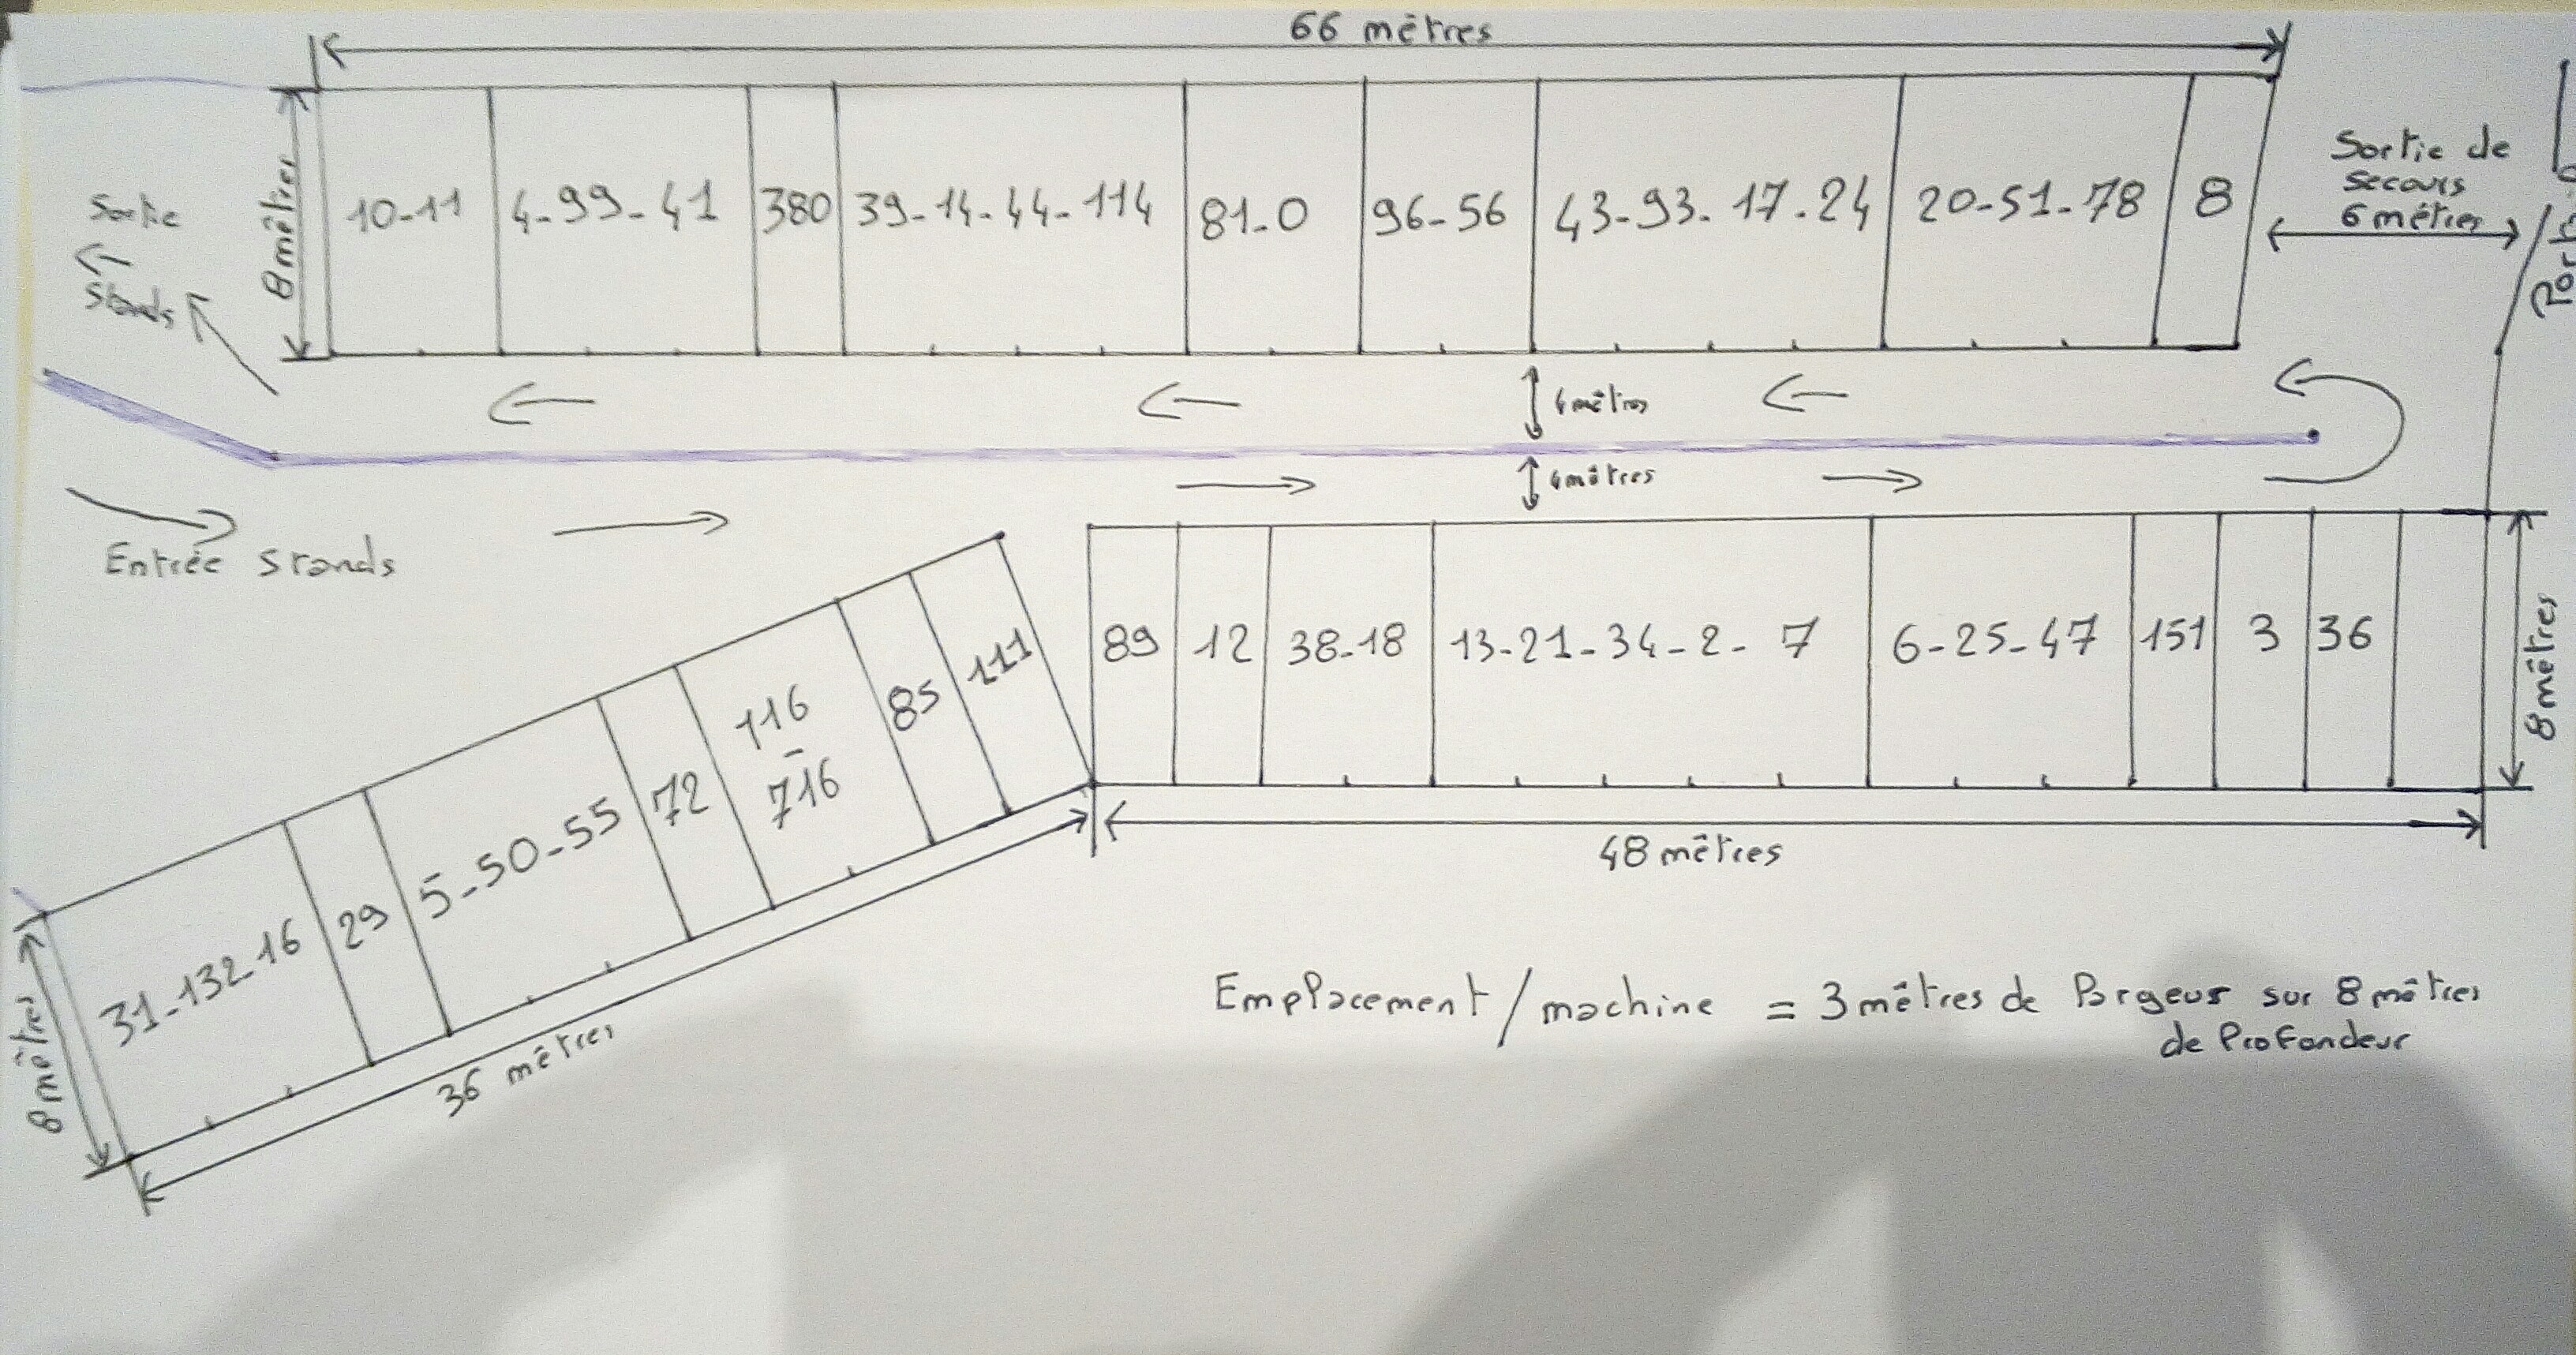 66 mètres
8 mètres
10-11
4-99-41
380
39-14-44-114
81-0
96-56
43-93-17-24
20-51-78
8
Sortie de
secours
6 mètres
Sortie
Stands
4 mètres
4 mètres
Entrée Stands
89
12
38-18
13-21-34-2-7
6-25-47
151
3
36
8 mètres
48 mètres
31-132-16
29
5-50-55
72
116
-
716
85
111
8 mètres
36 mètres
Emplacement / machine = 3 mètres de Largeur sur 8 mètres
de Profondeur